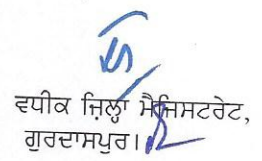 ਵਧੀਕ ਜ਼ਿਲ੍ਹਾ ਮੈਜਿਸਟਰੇਟ,
ਗੁਰਦਾਸਪੁਰ।